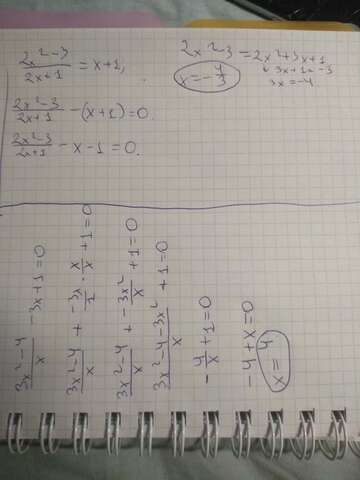 (2x²-3)/(2x+1) = x+1,
(2x²-3)/(2x+1) - (x+1) = 0.
(2x²-3)/(2x+1) - x - 1 = 0.
2x²-3 = 2x²+3x+1
3x+1 = -3
3x = -4
x = -4/3
(3x²-4)/x - 3x + 1 = 0
(3x²-4)/x + -3x/1 · x/x + 1 = 0
(3x²-4)/x + -3x²/x + 1 = 0
(3x²-4-3x²)/x + 1 = 0
-4/x + 1 = 0
-4 + x = 0
x = 4